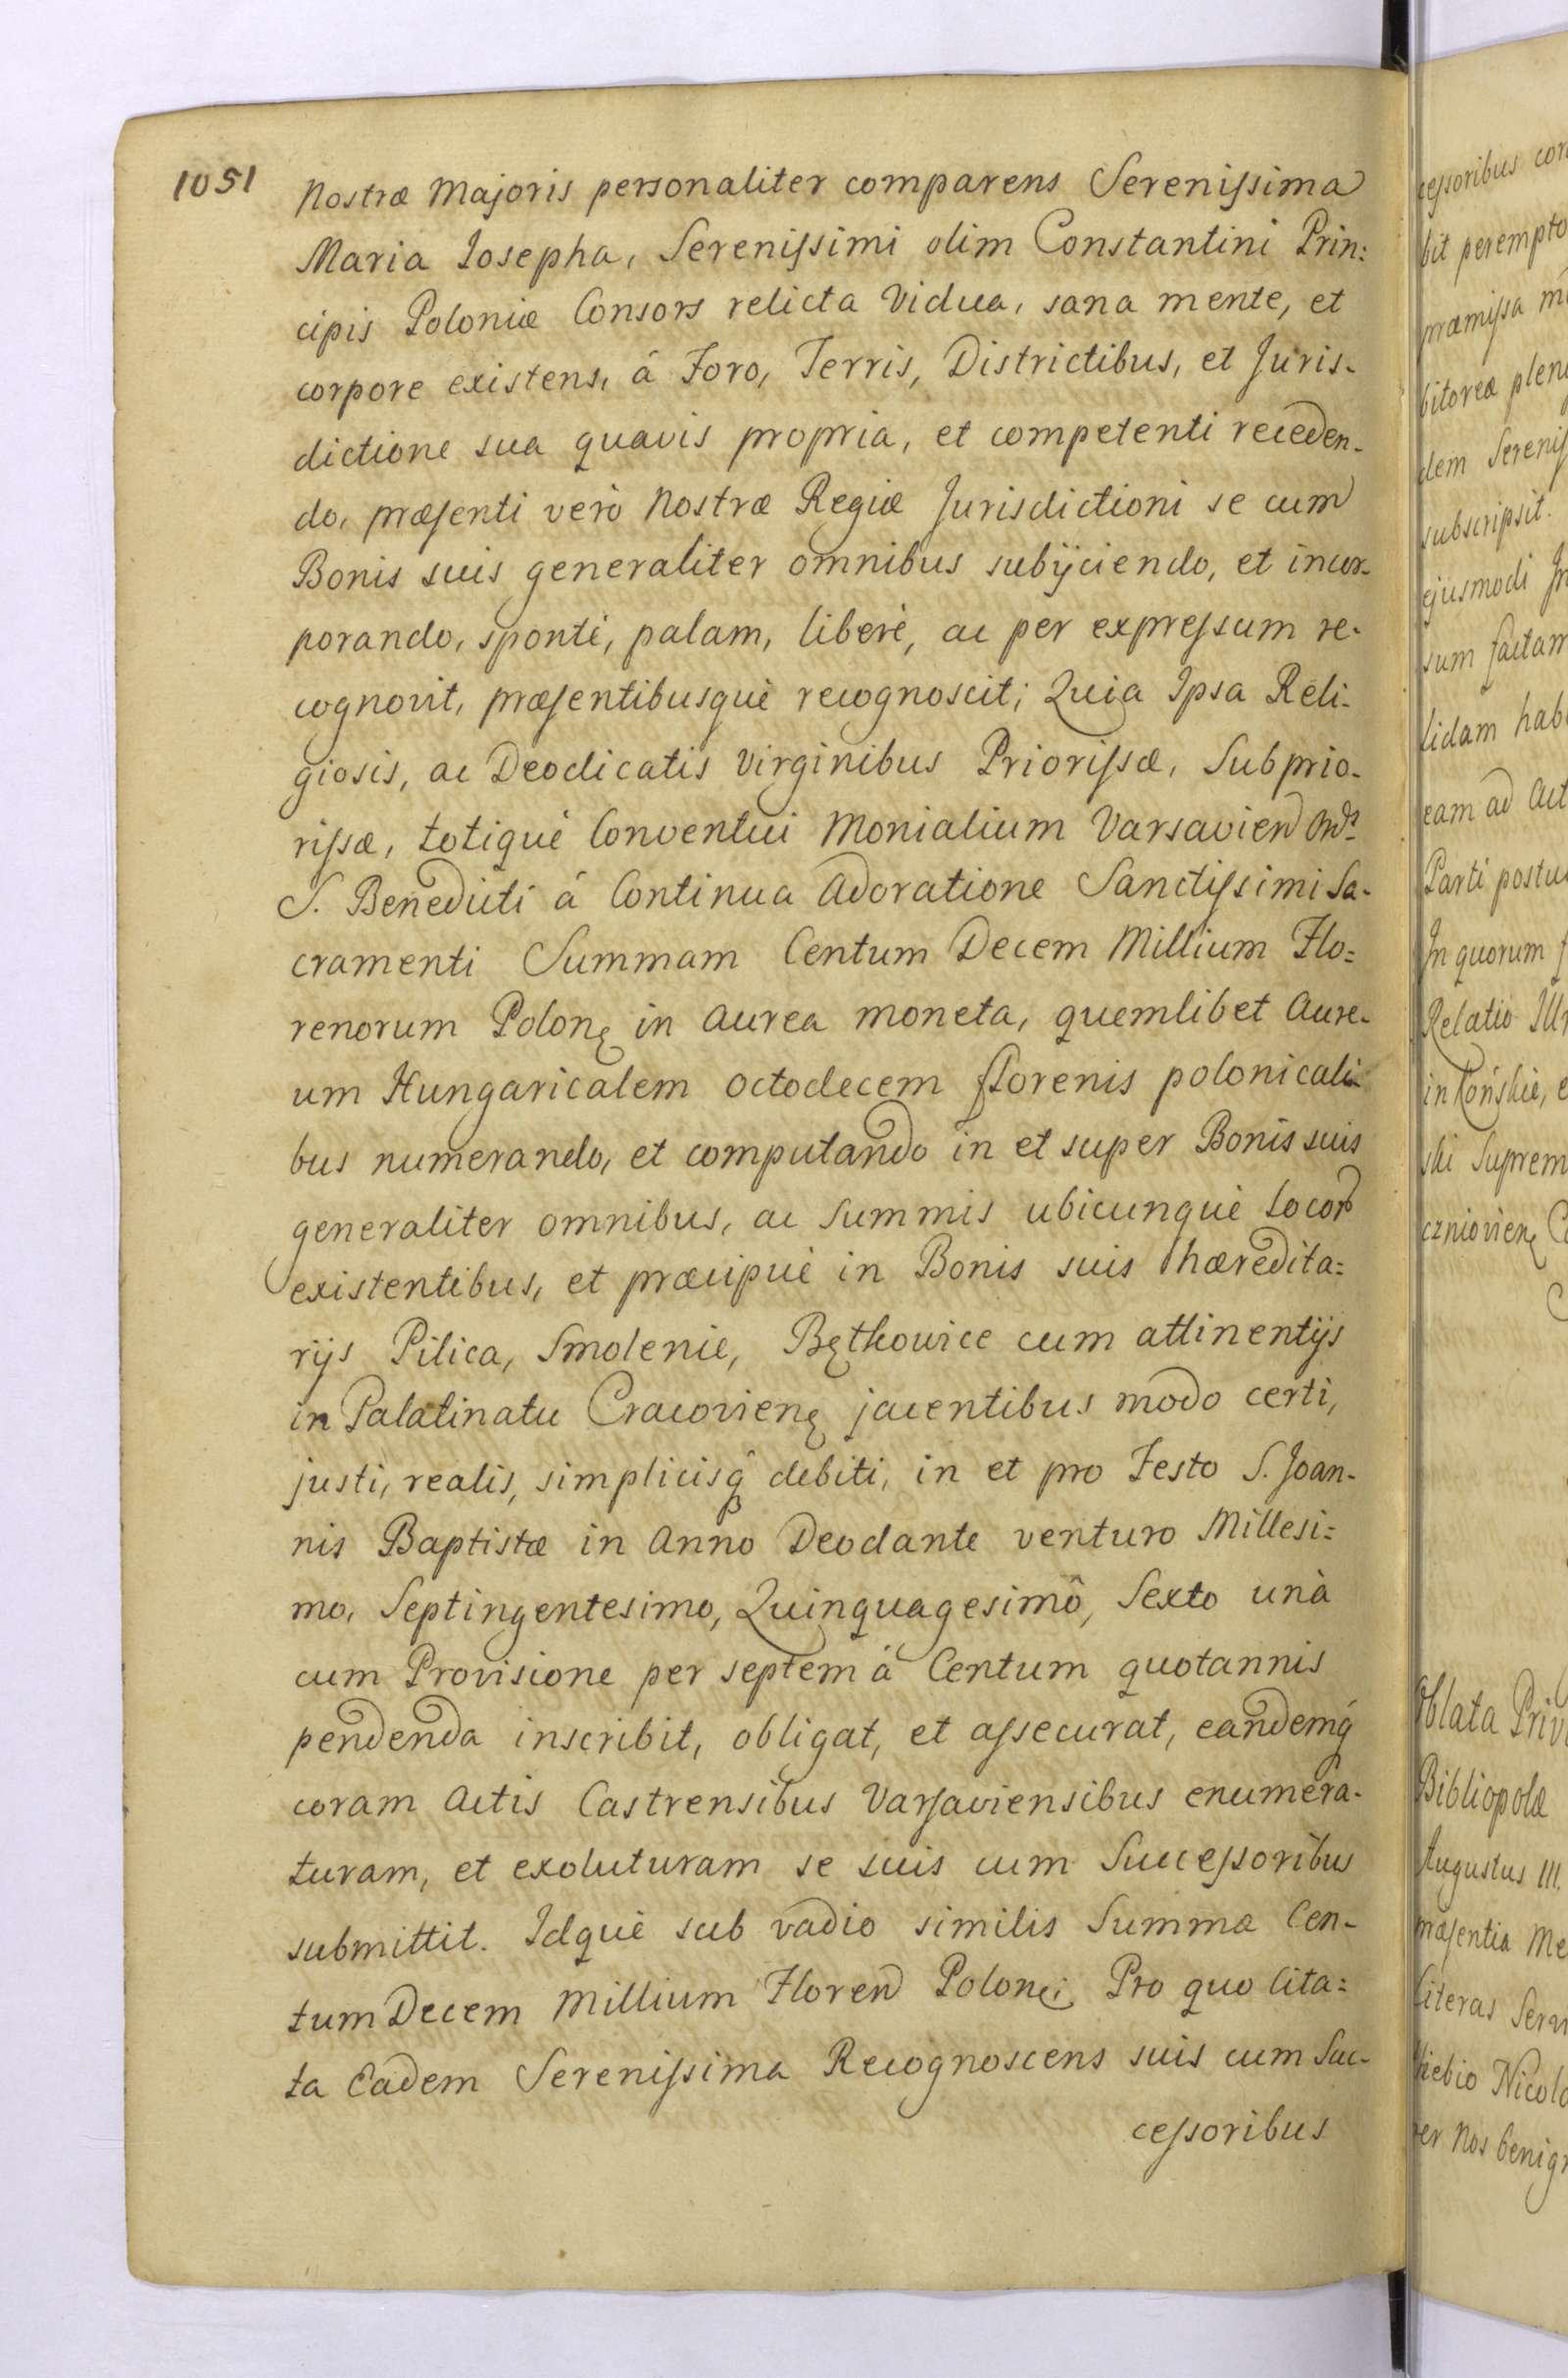 1051
Nostræ Majoris personaliter comparens Serenissima
Maria Josepha, Serenissimi olim Constantini Prin:
cipis Poloniæ Consors relicta Vidua, sana mente, et
corpore existens, á Foro, Terris, Districtibus, et Juris-
dictione sua quavis propria, et competenti receden-
do, præsenti verò Nostræ Regiæ Jurisdictioni se cum
Bonis suis generaliter omnibus subÿciendo, et incor-
porando, spontè, palam, liberè, ac per expressum re-
cognovit, præsentibusquè recognoscit; Quia Ipsa Reli-
giosis, ac Deodicatis Virginibus Priorissæ, Subprio-
rissæ, totiquè Conventui Monialium Varsavien Ordis
S. Benedicti á Continua Adoratione Sanctissimi Sa-
cramenti Summam Centum Decem Millium Flo:
renorum Polonę in aurea moneta, quemlibet Aure-
um Hungaricalem octodecem florenis polonicali-
bus numerando, et computando in et super Bonis suis
generaliter omnibus, ac Summis ubicunquè locor
existentibus, et præcipuè in Bonis suis hæredita:
rÿs Pilica, Smolenie, Bętkowice cum attinentÿs
in Palatinatu Cracovienę jacentibus modo certi,
justi, realis, simplicisq̂ debiti, in et pro Festo S. Joan-
nis Baptistæ in Anno Deodante venturo Millesi:
mo, Septingentesimo, Quinquagesimô, Sexto unà
cum Provisione per septem á Centum quotannis
pendenda inscribit, obligat, et assecurat, eandemq́
coram Actis Castrensibus Varsaviensibus enumera-
turam, et exoluturam se suis cum Successoribus
submittit. Idquè sub vadio similis Summæ Cen-
tum Decem Millium Floren Polonę; Pro quo Cita:
ta Eadem Serenissima Recognoscens suis cum Suc-
cessoribus
cessoribus
bit perempto
præmissa
dem Sereniss
subscripsit.
ejusmodi
sum factam
lidam
eam ad Act
Parti
In quorum
Relatio
in Końskie,
Suprem
Oblata
Bibliopolæ
Augustus III.
Literas
Nos benign